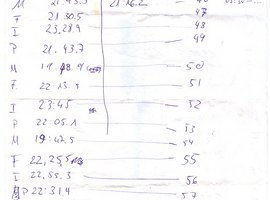 M 21.43.5 21.16.2
F 21.30.5 47
I 23.28.9 48
49
P 21.43.7
M 50
F 22.13.9 51
I 23:45 52
P 22:05.1 53
M 19:42.5 54
F 22,25,5 55
I 22,55.3 56
P 22:31.4 57